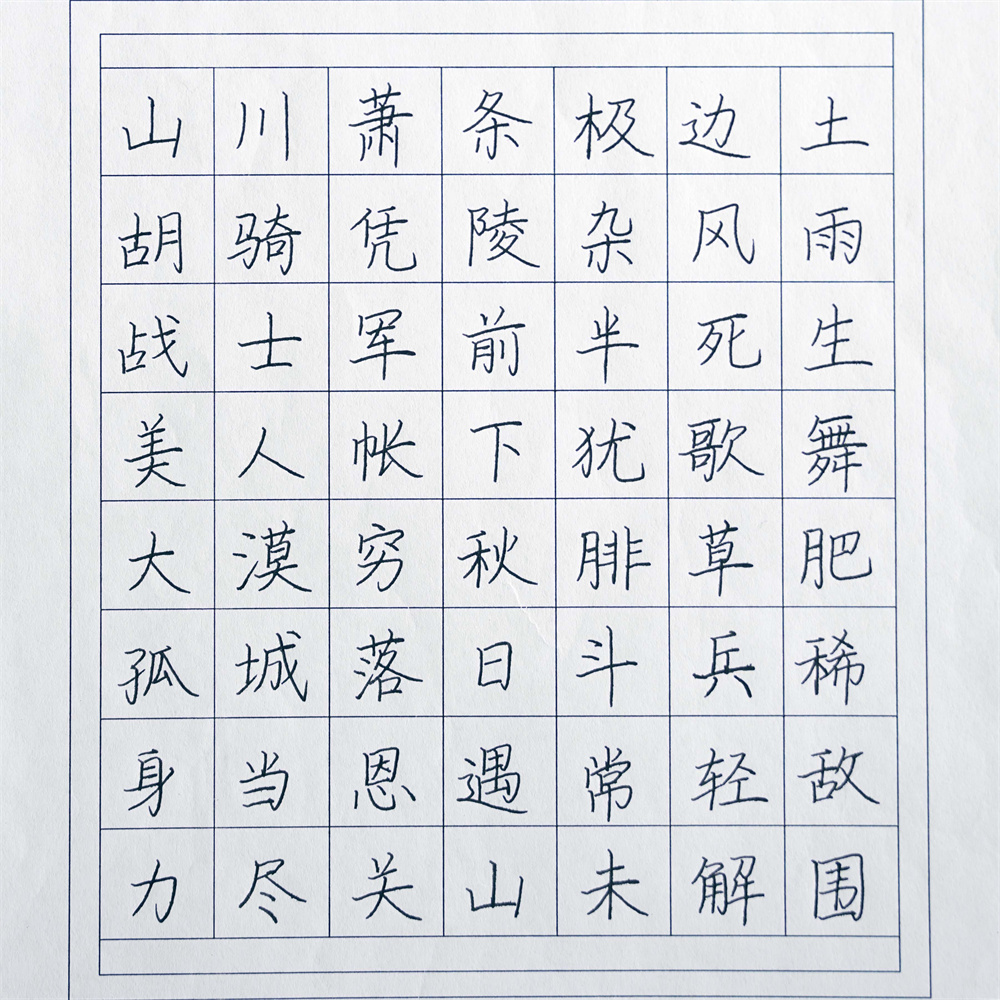 山川萧条极边土
胡骑凭陵杂风雨
战士军前半死生
美人帐下犹歌舞
大漠穷秋腓草肥
孤城落日斗兵稀
身当恩遇常轻敌
力尽关山未解围